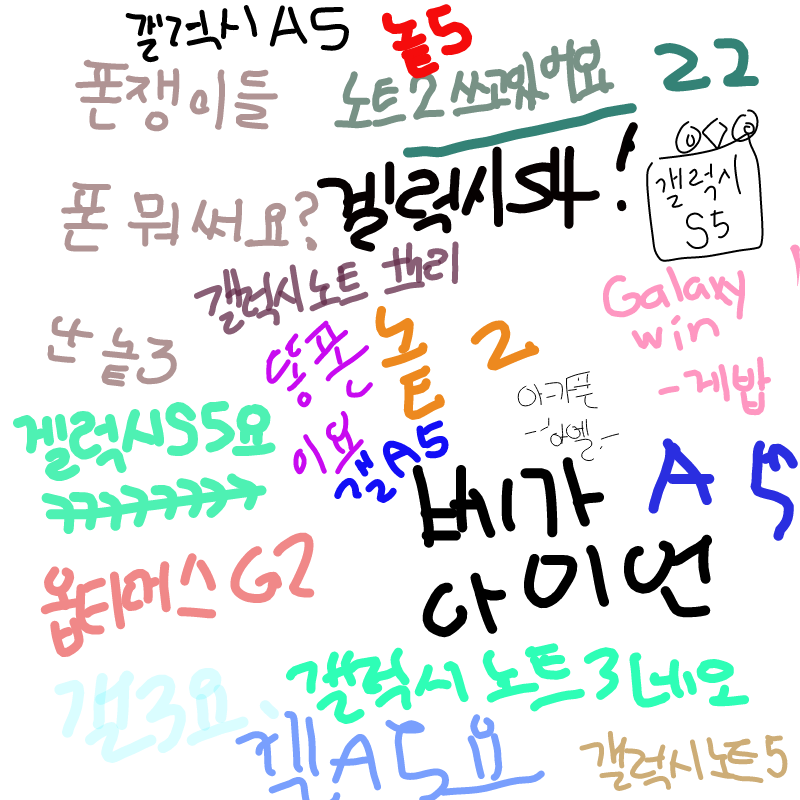 갤럭시 A5
놑5
폰쟁이들
노트2 쓰고있어요
22
폰 뭐써요?
겔럭시S4!
갤럭시
S5
갤럭시노트
Galaxy
win
-게밥
난 놑3
똥폰
이요
노트 2
겔럭시S5요
ㅋㅋㅋㅋㅋㅋㅋ
갤A5
아카폰
A 5
베가
아이언
옵티머스 G2
갤3요
갤럭시 노트3네오
A5요
갤럭시노트5